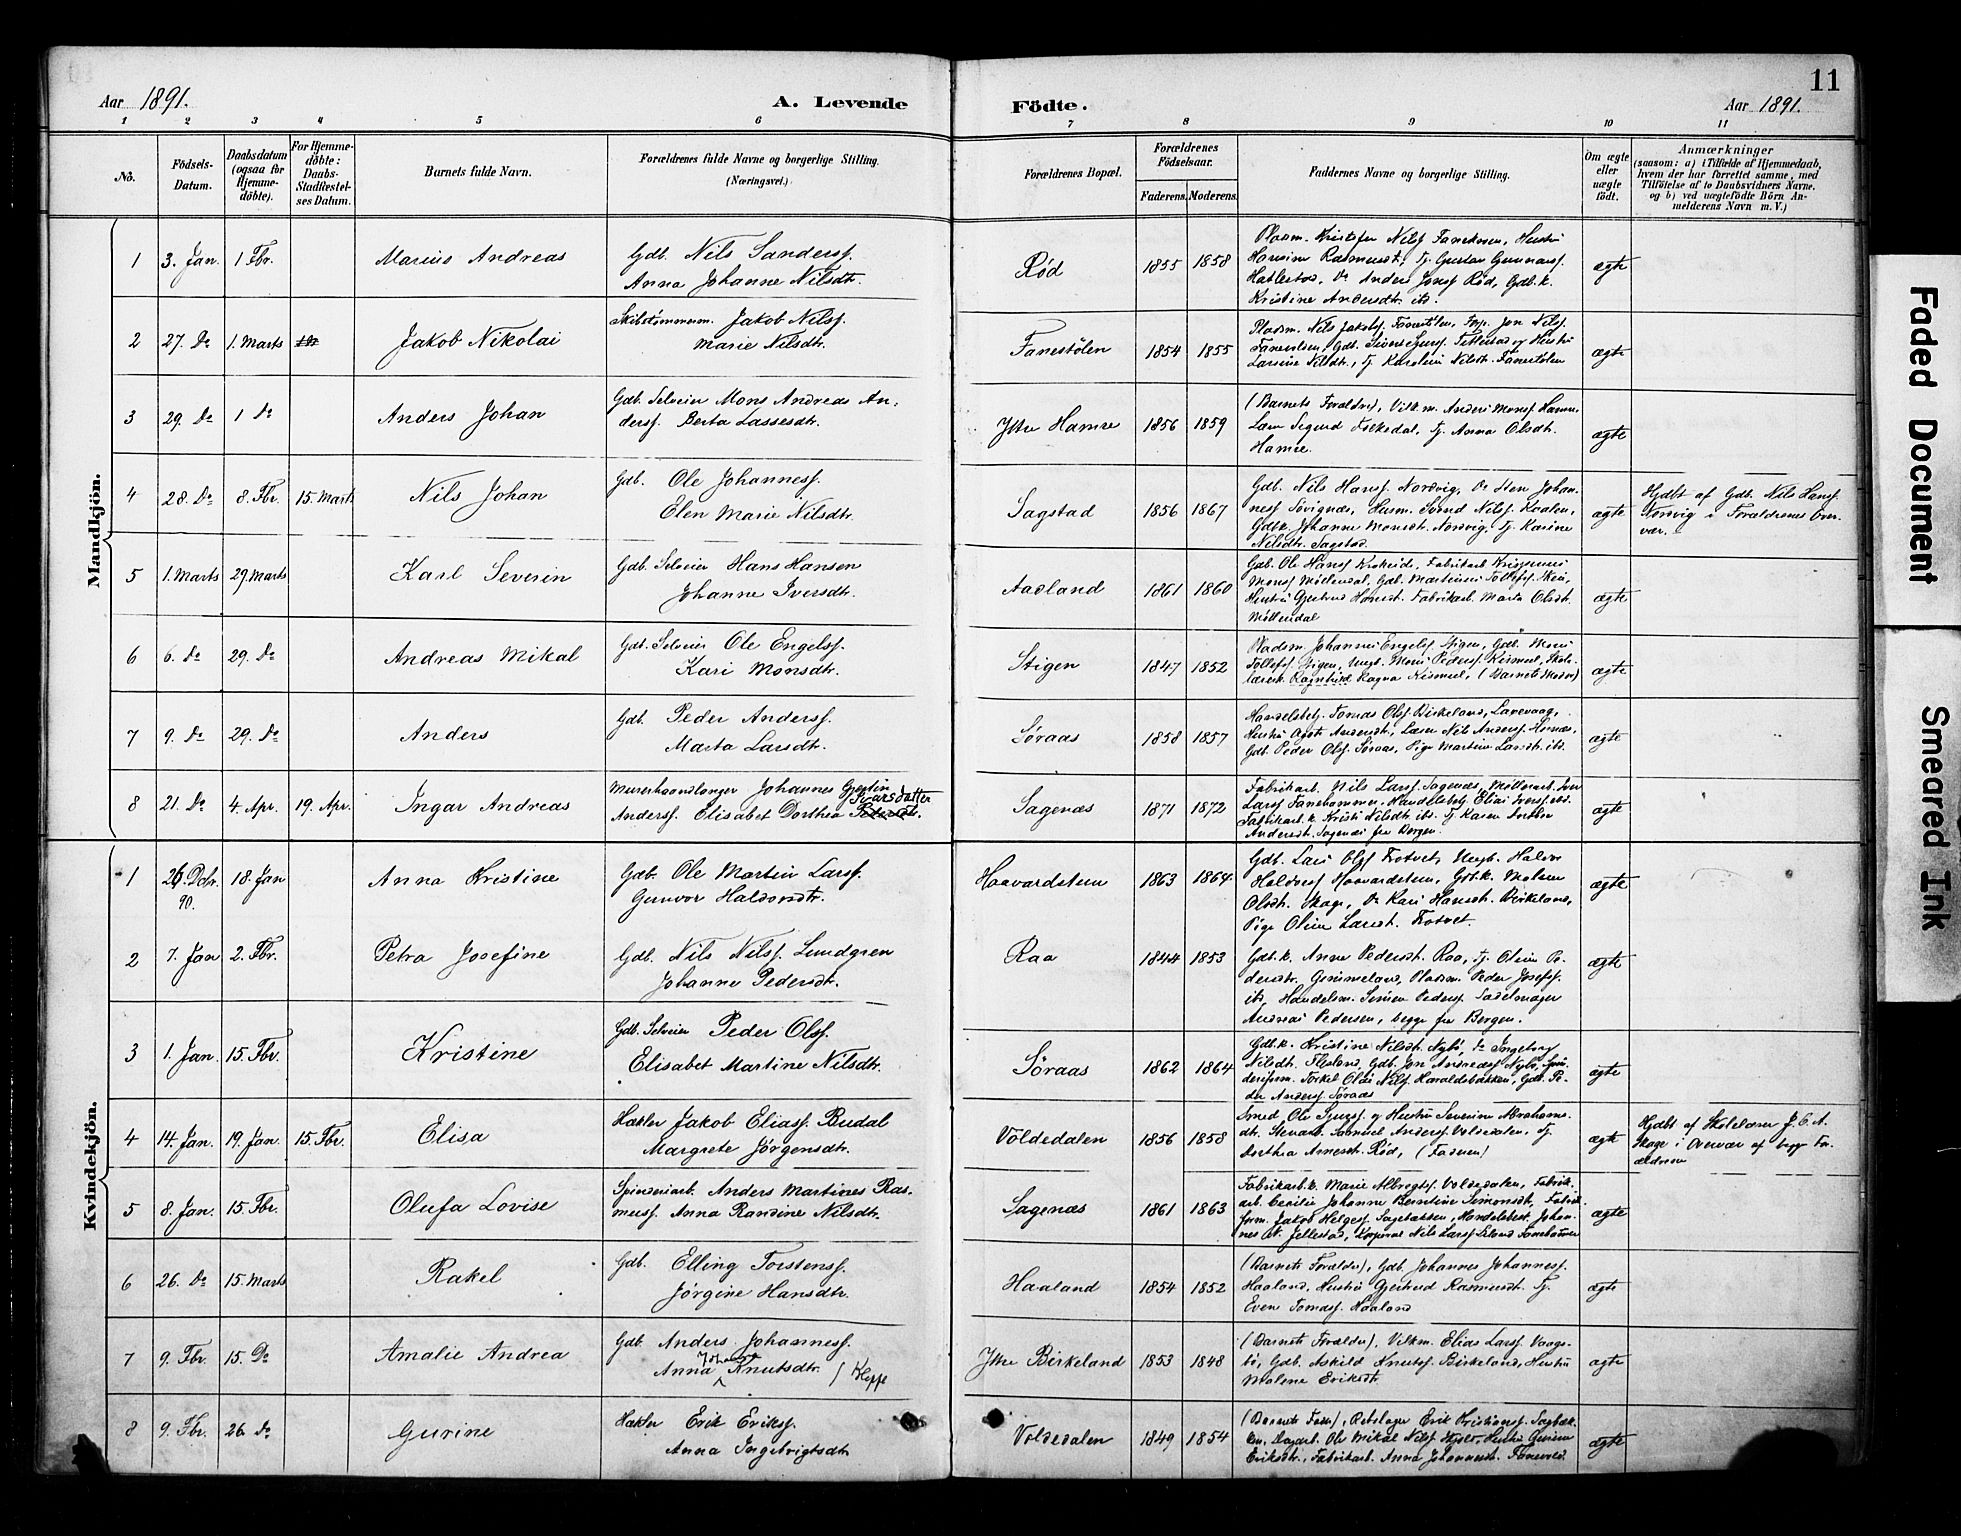 Aar 1891.
A. Levende
Födte.
Aar 1891.
11
1 2 3 4 5 6 7 8 9 10 11
No.
Födsels-
Datum.
Daabsdatum
(ogsaa for
Hjemme-
döbte).
For Hjemme-
döbte:
Daabs-
Stadfæstel-
ses Datum.
Barnets fulde Navn.
Forældrenes fulde Navne og borgerlige Stilling.
(Næringsvei.)
Forældrenes Bopæl.
Forældrenes
Födselsaar.
Faderens.
Moderens.
Faddernes Navne og borgerlige Stilling.
Om ægte
eller
uægte
födt.
Anmærkninger
(saasom: a) i Tilfælde af Hjemmedaab,
hvem der har forrettet samme, med
Tilföielse af to Daabsvidners Navne,
og b) ved uægtefödte Börn An-
melderens Navn m. V.)
Mandkjön.
1 3. Jan. 1 Fbr. Marius Andreas
Gdb. Nils Sanderss.
Anna Johanne Nilsdtr.
Rød 1855 1858
Pladsm. Kristofer Nilss. Hustru
Hansine Rasmusdt., Tj. Gustav Gunnarss.
Hatlestad, Do Anders Jonss. Rød, Gdb.k.
Kristine Andersdtr. ibd.
ægte
2 27. Do 1. Marts Jakob Nikolai
Skibstømmerm. Jakob Nilss.
Marie Nilsdtr.
Fanestølen 1854 1855
Pladsm. Nils Jakobs. Fanestølen, Jon Nilss.
Gdb. og Hustru
Larsine Nilsdtr., Tj. Karoline Nilsdt. Fanestølen
ægte
3 29. Do 1 Do Anders Johan
Gdb. Selveier Mons Andreas An-
derss. Berta Lassesdtr.
Ytre Hamre 1856 1859
(Barnets Forældre), Vilk.m. Anders Monss. Hamre,
Sigurd Tj. Anna Olsdtr.
Hamre.
ægte
4 28. Do 8. Fbr. 15. Marts Nils Johan
Gdb. Ole Johanness.
Elen Marie Nilsdtr.
Sagstad 1856 1867
Gdb. Nils Hanss. Nordvig, Do Sten Johan-
ness. Søvignæs, Husm. Svend Nilss.
Gdb.k. Johanne Monsdt. Nordvig, Tj. Karine
Nilsdtr. Sagstad.
ægte
Hjdbt af Gdb. Nils Hanss.
Nordvig i Forældrenes Over-
vær.
5 1. Marts 29. Marts Karl Severin
Gdb. Selveier Hans Hansen
Johanne Iversdtr.
Aadland 1861 1860
Gdb. Ole Hanss. Krokeide, Fabrikarb.
Monss. Møllendal, Gdb. Martinus Tollefss.
Hustru Gjertrud Hansdt. Fabrikarb. Marta Olsdt.
Møllendal
ægte
6 6. Do 29. Do Andreas Mikal
Gdb. Selveier Ole Engelss.
Kari Monsdtr.
Stigen 1847 1852
Pladsm. Johannes Engelss. Stigen, Gdb. Mons
Tollefss. Stigen, Ungk. Mons Pederss. Kismul, Skole-
lærersk. Ragnhild Ragna Kismul, (Barnets Moder)
ægte
7 9. Do 29. Do Anders
Gdb. Peder Anderss.
Marta Larsdtr.
Søraas 1858 1857
Handelsbetj. Tomas Olss. Birkeland, Larevaag,
Hustru Agate Andersdt., Nils Anderss.
Gdb. Peder Olss. Søraas, Pige Martine Larsdt. ibd.
ægte
8 21. Do 4 Apr. 19. Apr. Ingar Andreas
Murerhaandlanger Johannes Gjertin
Anderss. Elisabet Dorthea Ivarsdatter
Sagenæs 1871 1872
Fabrikarb. Nils Larss. Sagenæs, Møllerarb. Iver
Larss. Fanehammer, Handelsbetj. Elias Iverss. ibd.
Fabrikarb.k. Kristi Nilsdtr. ibd. Tj. Karen Dorthea
Andersdt. Sagenæs fra Bergen.
ægte
Kvindekjön.
1 26. Dcbr. 90. 18. Jan Anna Kristine
Gdb. Ole Martin Larss.
Gunvor Haldorsdtr.
Haavardstun 1863 1864
Gdb. Lars Olss. Totvet, Ungk. Haldor
Haldorss. Haavardstun, Gdb.k. Malene
Olsdt. Skage, Do Kari Hansdt. Birkeland,
Pige Oline Larsdt. Totvet.
ægte
2 7. Jan 2. Fbr. Petra Josefine
Gdb. Nils Nilss. Lundgren
Johanne Pedersdtr.
Raa 1844 1853
Gdb.k. Anne Pedersdt. Raa, Tj. Oline Pe-
dersdtr. Grimmeland, Pladsm. Peder Josefss.
ibd, Handelsm. Simon Pederss. Sadelmager
Andreas Pedersen, begge fra Bergen.
ægte
3 1. Jan 15. Fbr. Kristine
Gdb. Selveier Peder Olss.
Elisabet Martine Nilsdtr.
Søraas 1862 1864
Gdb.k. Kristine Nilsdt. Nybø, Do Ingeborg
Nilsdtr. Flesland, Gdb. Jon Andreass. Nybø, Spin-
deriform. Torkel Olai Nilss. Haraldsbakken, Gdb. Pe-
der Anderss. Søraas
ægte
4 14. Jan. 19. Jan. 15. Fbr. Elisa
Hækler Jakob Eliass. Budal
Margrete Jørgensdtr.
Voldedalen 1856 1858
Smed Ole Sjurss. og Hustru Severine Abrahams-
dtr. Samuel Anderss. Voldedalen. Tj.
Dorthea Arnesdt. Rød, (Faderen)
ægte
Hjdbt af Skolelærer J. C. A.
Skage i Overvær af begge For-
ældrene
5 8. Jan. 15. Fbr. Olufa Lovise
Spinderiarb. Anders Martines Ras-
muss. Anna Randine Nilsdtr.
Sagenæs 1861 1863
Fabrikarb.k. Marie Albregtss. Voldedalen, Fabrik-
arb. Cecilie Johanne Berntine Simonsdt, Fabrik-
form. Jakob Helgess. Sagebakken, Handelsbest. Johan-
nes A. Jellestad, Korporal Nils Larss. Fanehammer
ægte
6 26. Do 15. Marts Rakel
Gdb. Elling Torstenss.
Jørgine Hansdtr.
Haaland 1854 1852
(Barnets Forældre), Gdb. Johannes Johanness.
Haaland, Hustru Gjertrud Rasmusdt. Tj.
Even Tomass. Haaland
ægte
7 9. Fbr. 15. Do Amalie Andrea
Gdb. Anders Johanness.
Anna Johanna Knutsdtr. / Kleppe
Ytre Birkeland 1853 1848
(Barnets Forældre), Vilkm. Elias Larss. Vaags-
bø, Gdb. Askild Knutss. Birkeland, Hustru
Malene Eriksdtr.
ægte
8 9. Fbr. 26. Do Gurine
Hækler Erik Erikss.
Anna Ingebrigtsdtr.
Voldedalen 1849 1854
(Barnets Fader), Rebslager Erik Kristianss. Sagbak-
ken, Dagarb. Ole Mikal Nilss. Hustru Gurine
Eriksdtr., Fabrikarb. Anna Johannesdt.
ægte
Faded Document
Smeared Ink